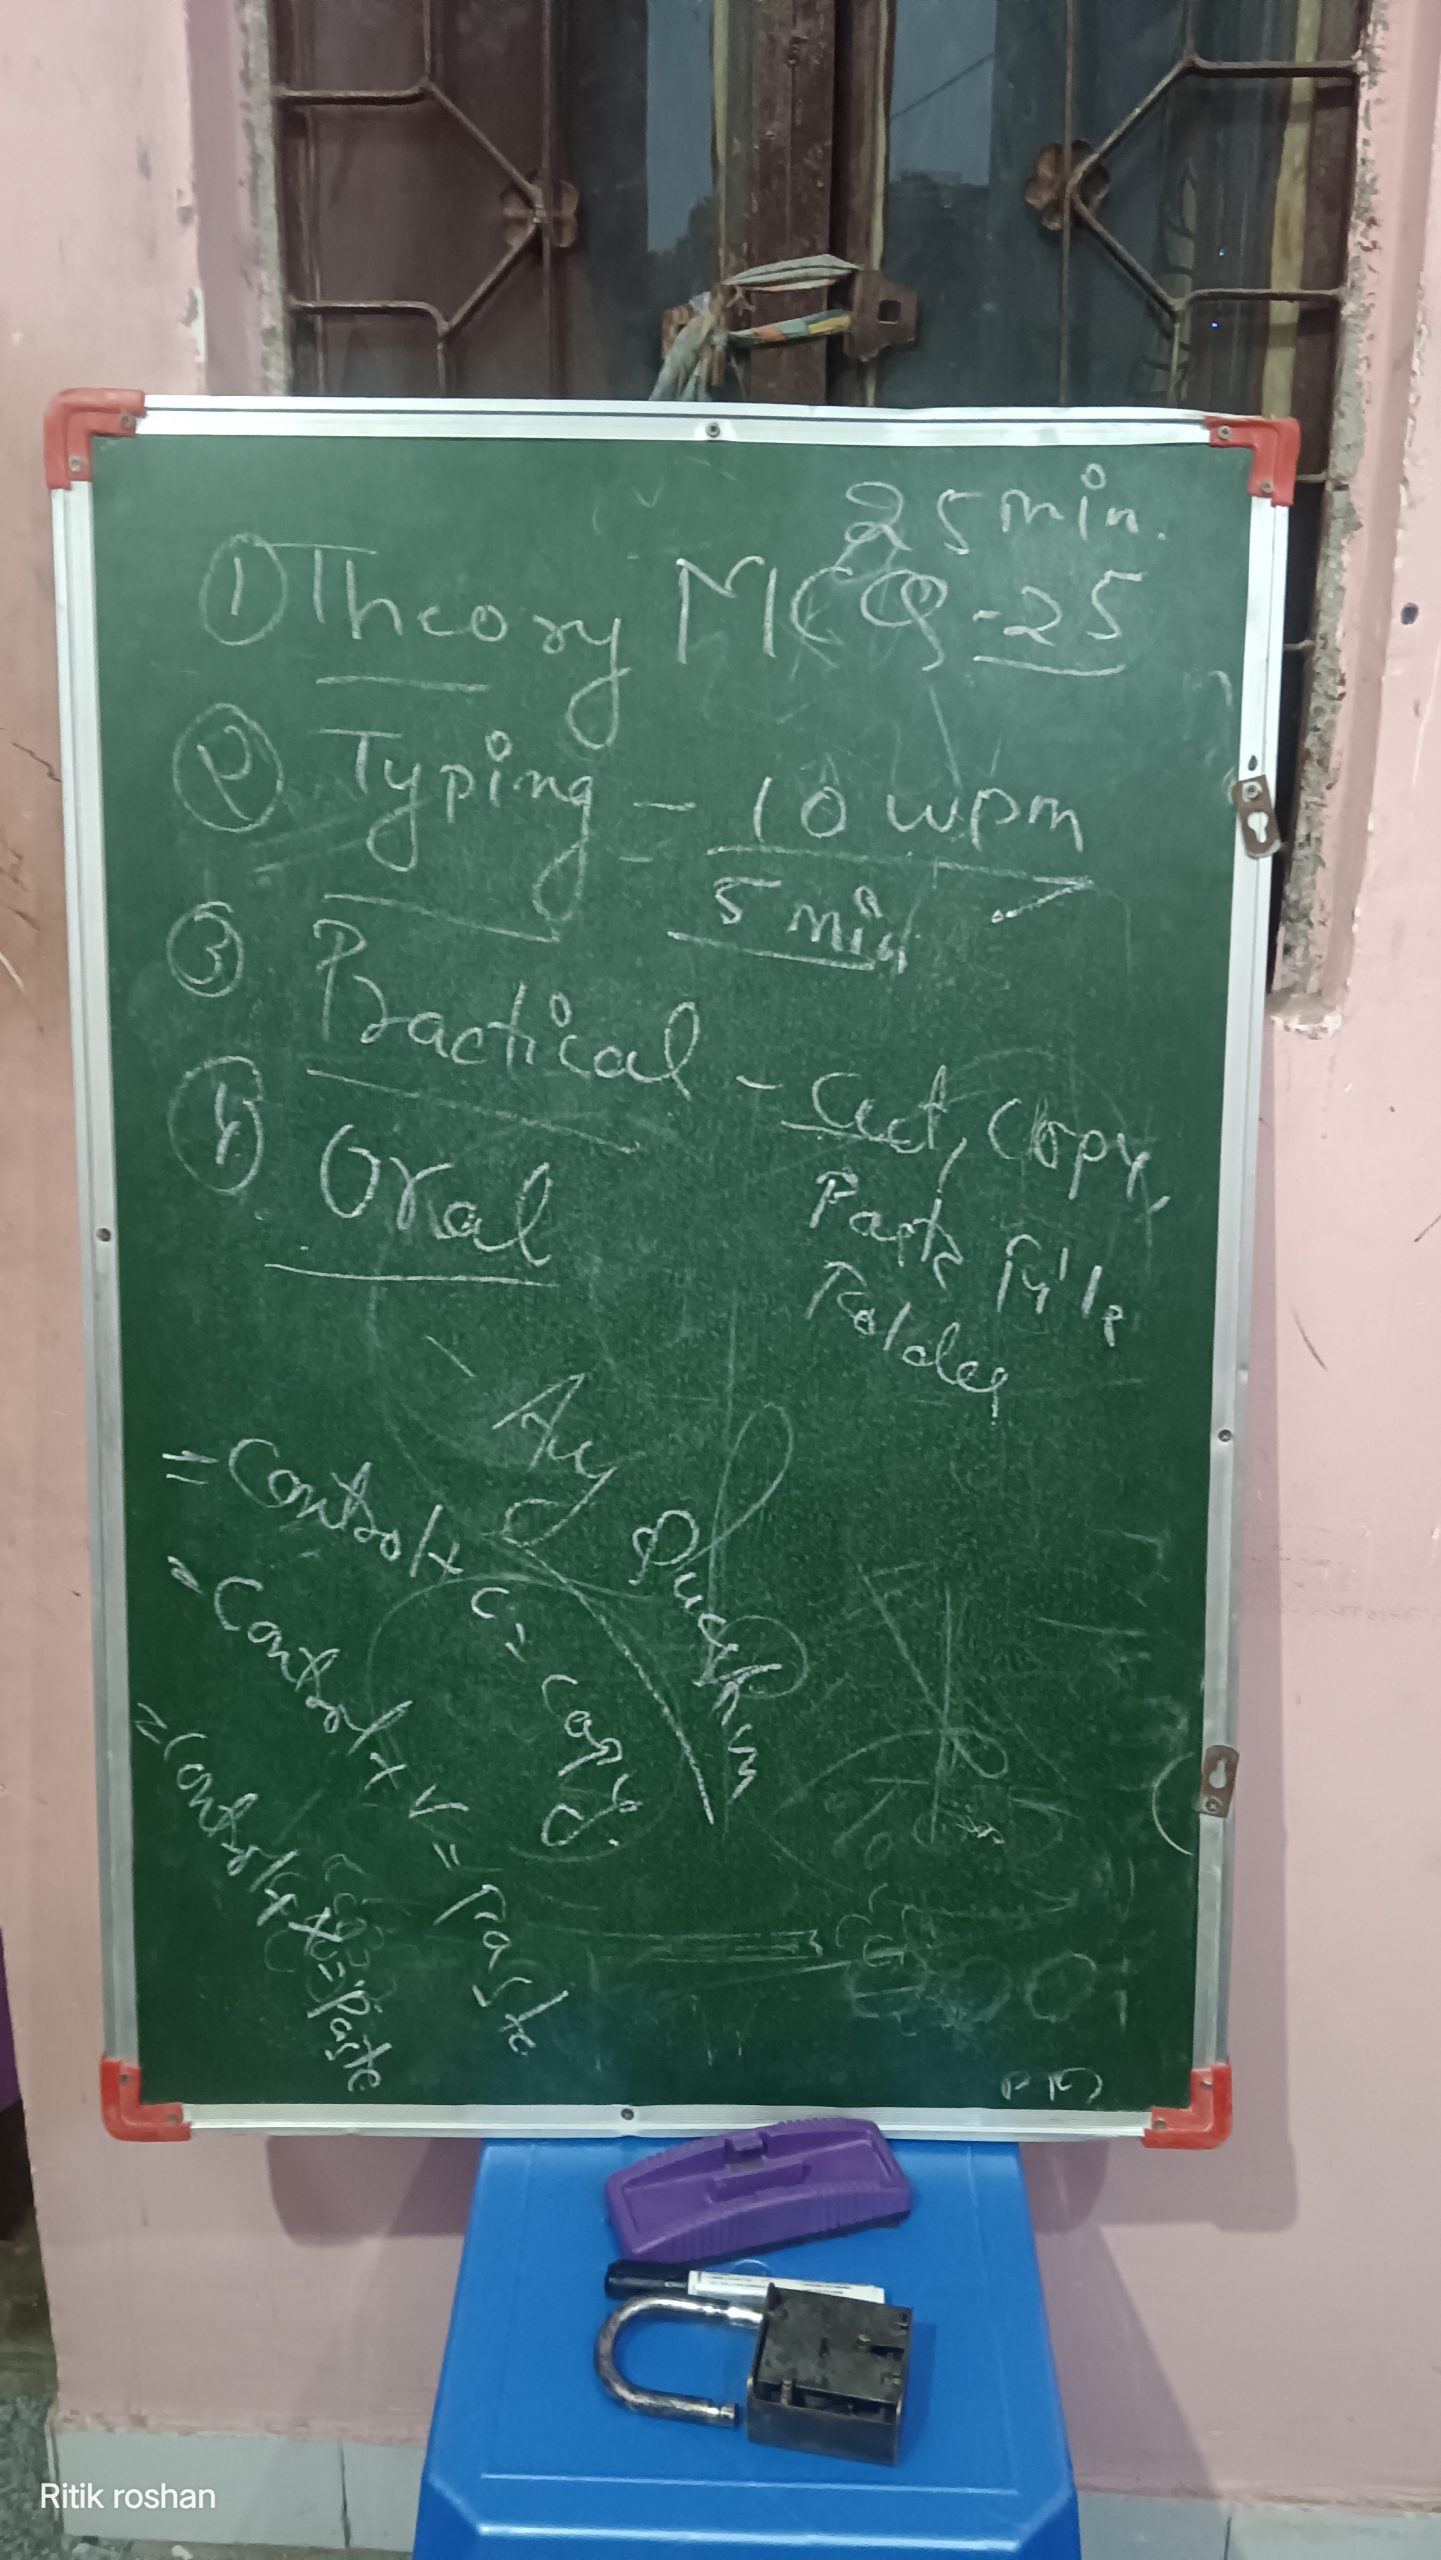 25 min.
① Theory MCQ - 25
② Typing - 10 wpm
5 min
③ Practical - Cut, Copy,
Paste File
Folder
④ Oral
Any
Question
Control + C = Copy
Control + V = Paste
Control + X = Paste
Ritik roshan